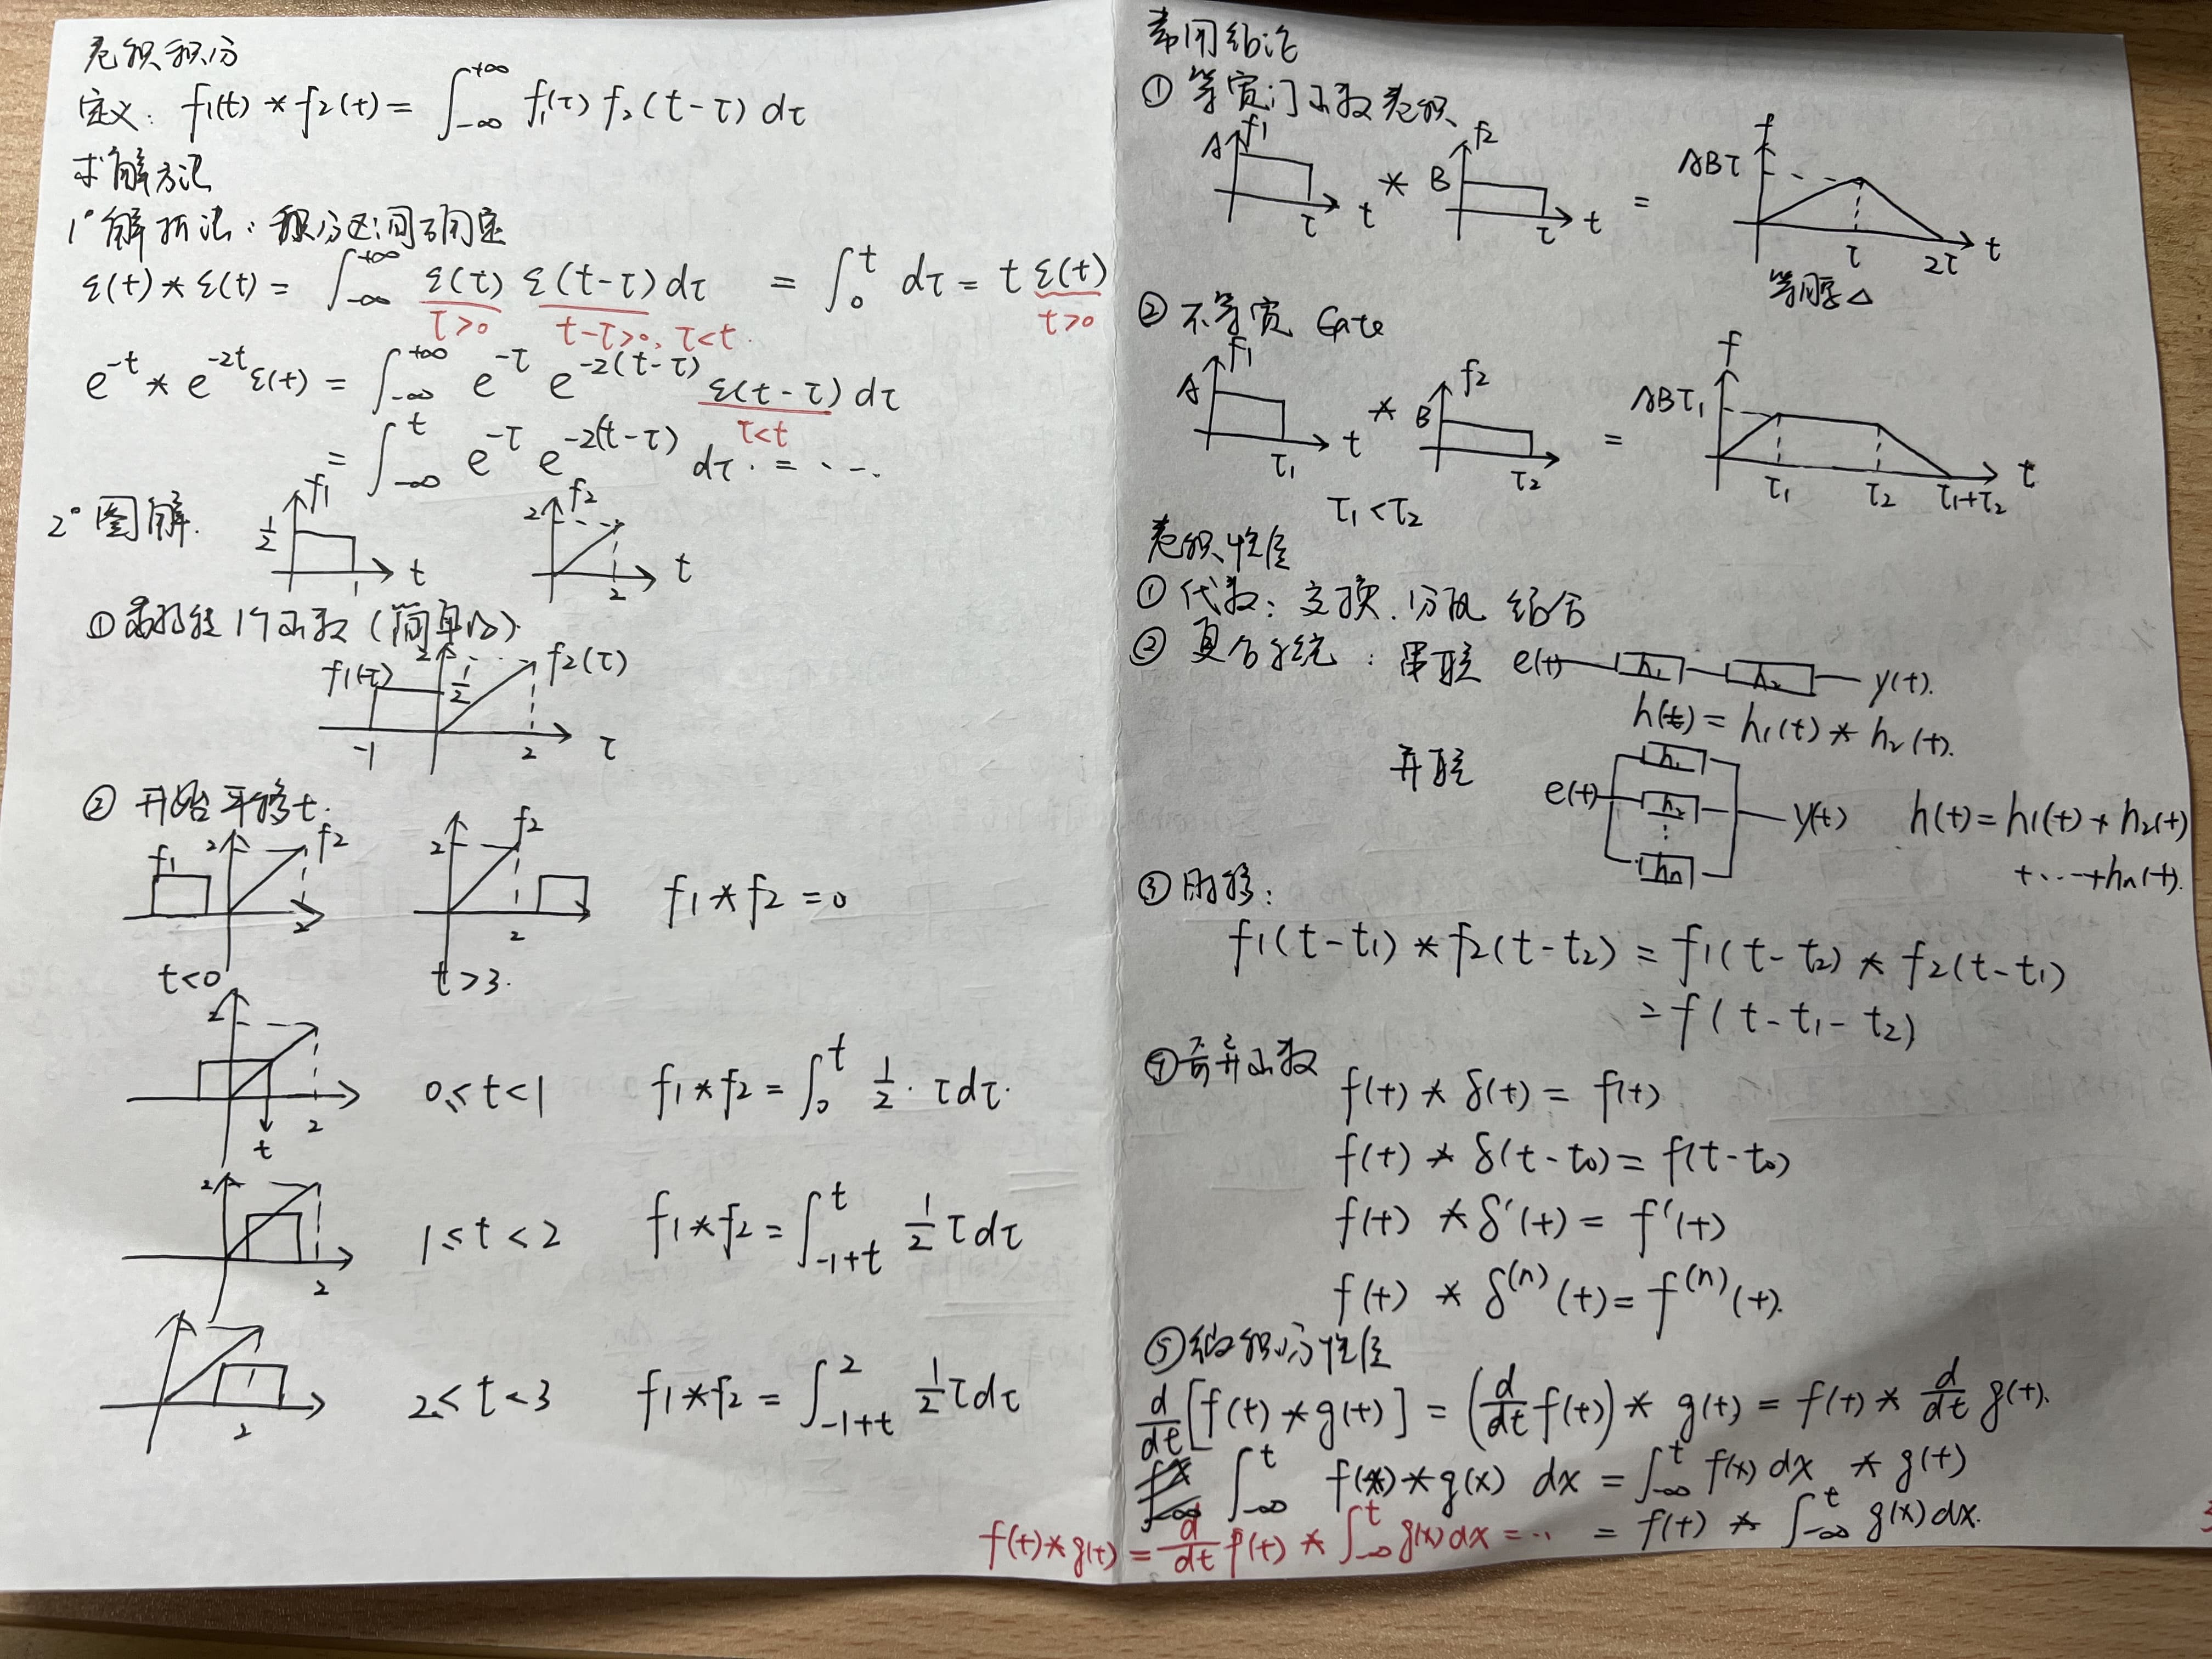 卷积积分
定义: f₁(t) * f₂(t) = ∫_{-∞}^{+∞} f₁(τ) f₂(t-τ) dτ
求解方法
1° 解析法: 积分区间确定
ε(t) * ε(t) = ∫_{-∞}^{+∞} ε(τ) ε(t-τ) dτ = ∫_0^t dτ = t ε(t)
τ>0 t-τ>0, τ<t t>0
e^{-t} * e^{-2t} ε(t) = ∫_{-∞}^{+∞} e^{-τ} e^{-2(t-τ)} ε(t-τ) dτ
τ<t
= ∫_{-∞}^t e^{-τ} e^{-2(t-τ)} dτ. = ...
2° 图解.
f₁ 1/2 1 t
f₂ 2 2 t
① 翻转 1个函数 (简单的)
f₁(-τ) 1/2 -1 2 f₂(τ) 2 τ
② 开始平移t.
f₁ 2 f₂ 2
t<0
2 f₂ 2
t>3.
f₁ * f₂ = 0
2 2 t
0≤t<1 f₁ * f₂ = ∫_0^t 1/2 · τ dτ.
2 2
1≤t<2 f₁ * f₂ = ∫_{-1+t}^t 1/2 τ dτ
2
2≤t<3 f₁ * f₂ = ∫_{-1+t}^2 1/2 τ dτ
常用结论
① 等宽门函数卷积
A f₁ τ t * B f₂ τ t = ABτ f τ 2τ t
等腰△
② 不等宽 Gate
A f₁ τ₁ t * B f₂ τ₂ = ABτ₁ f τ₁ τ₂ τ₁+τ₂ t
τ₁<τ₂
卷积性质
① 代数: 交换. 分配 结合
② 复合系统: 串联 e(t) h₁ h₂ y(t).
h(t) = h₁(t) * h₂(t).
并联 e(t) h₁ h₂ ⋮ hn y(t) h(t) = h₁(t) + h₂(t)
+...+hn(t).
③ 时移:
f₁(t-t₁) * f₂(t-t₂) = f₁(t-t₂) * f₂(t-t₁)
= f(t-t₁-t₂)
④ 奇异函数
f(t) * δ(t) = f(t)
f(t) * δ(t-t₀) = f(t-t₀)
f(t) * δ'(t) = f'(t)
f(t) * δ^{(n)}(t) = f^{(n)}(t).
⑤ 微积分性质
d/dt [f(t) * g(t)] = (d/dt f(t)) * g(t) = f(t) * d/dt g(t).
∫_{-∞}^t f(x) * g(x) dx = ∫_{-∞}^t f(x) dx * g(t)
= f(t) * ∫_{-∞}^t g(x) dx.
f(t) * g(t) = d/dt f(t) * ∫_{-∞}^t g(x) dx = ...